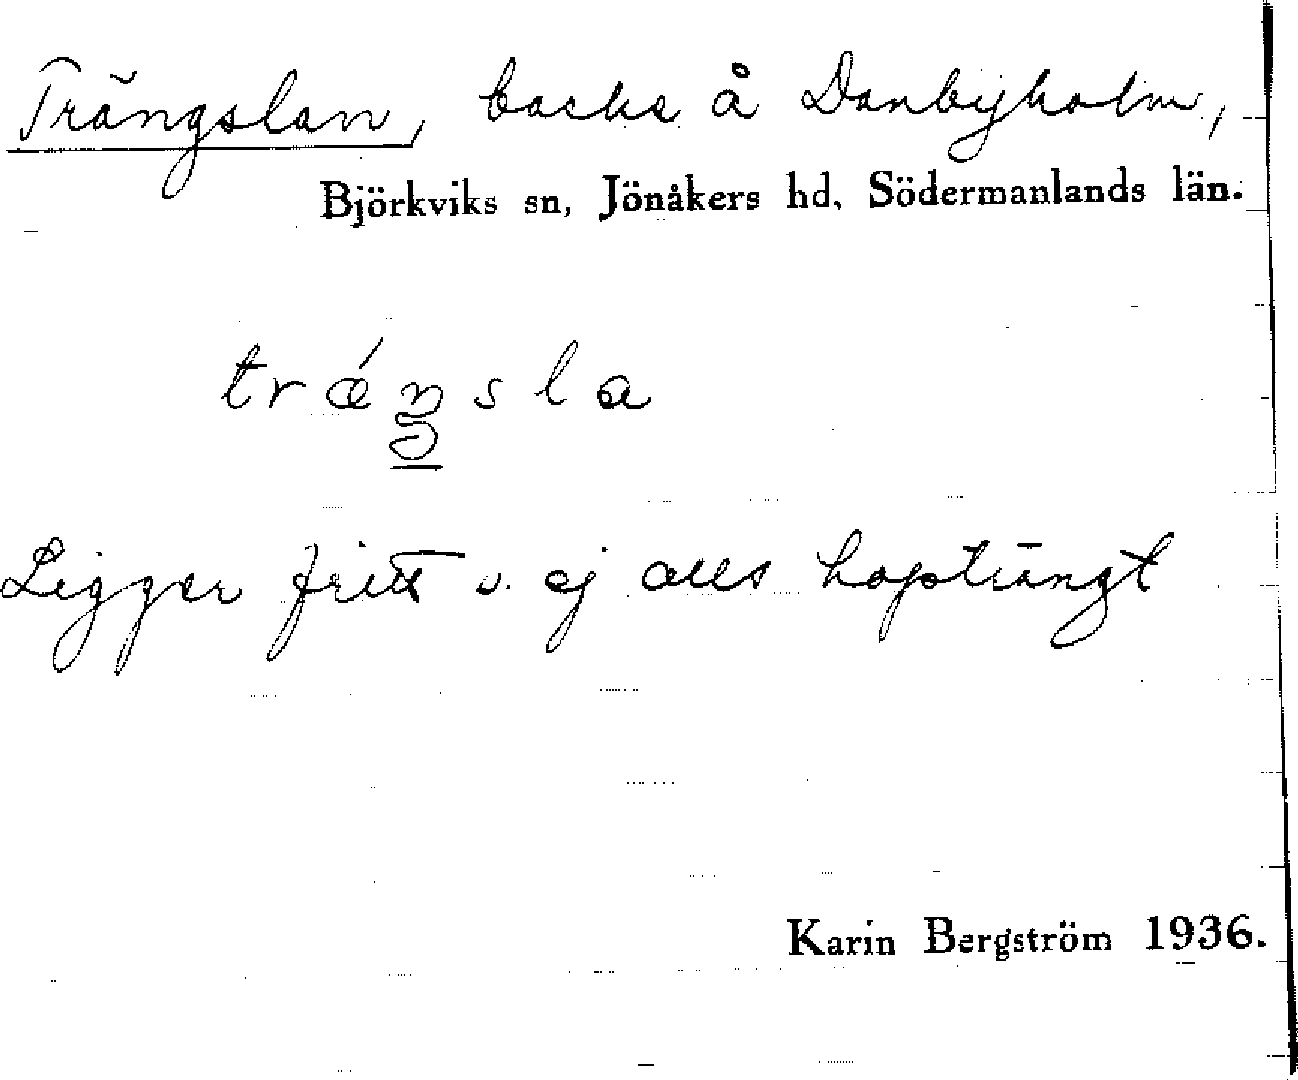 Trängslan, backe å Danbyholm,
Björkviks sn, Jönåkers hd, Södermanlands län.
trǽŋsla
Ligger fritt o. ej alls hopträngt
Karin Bergström 1936.